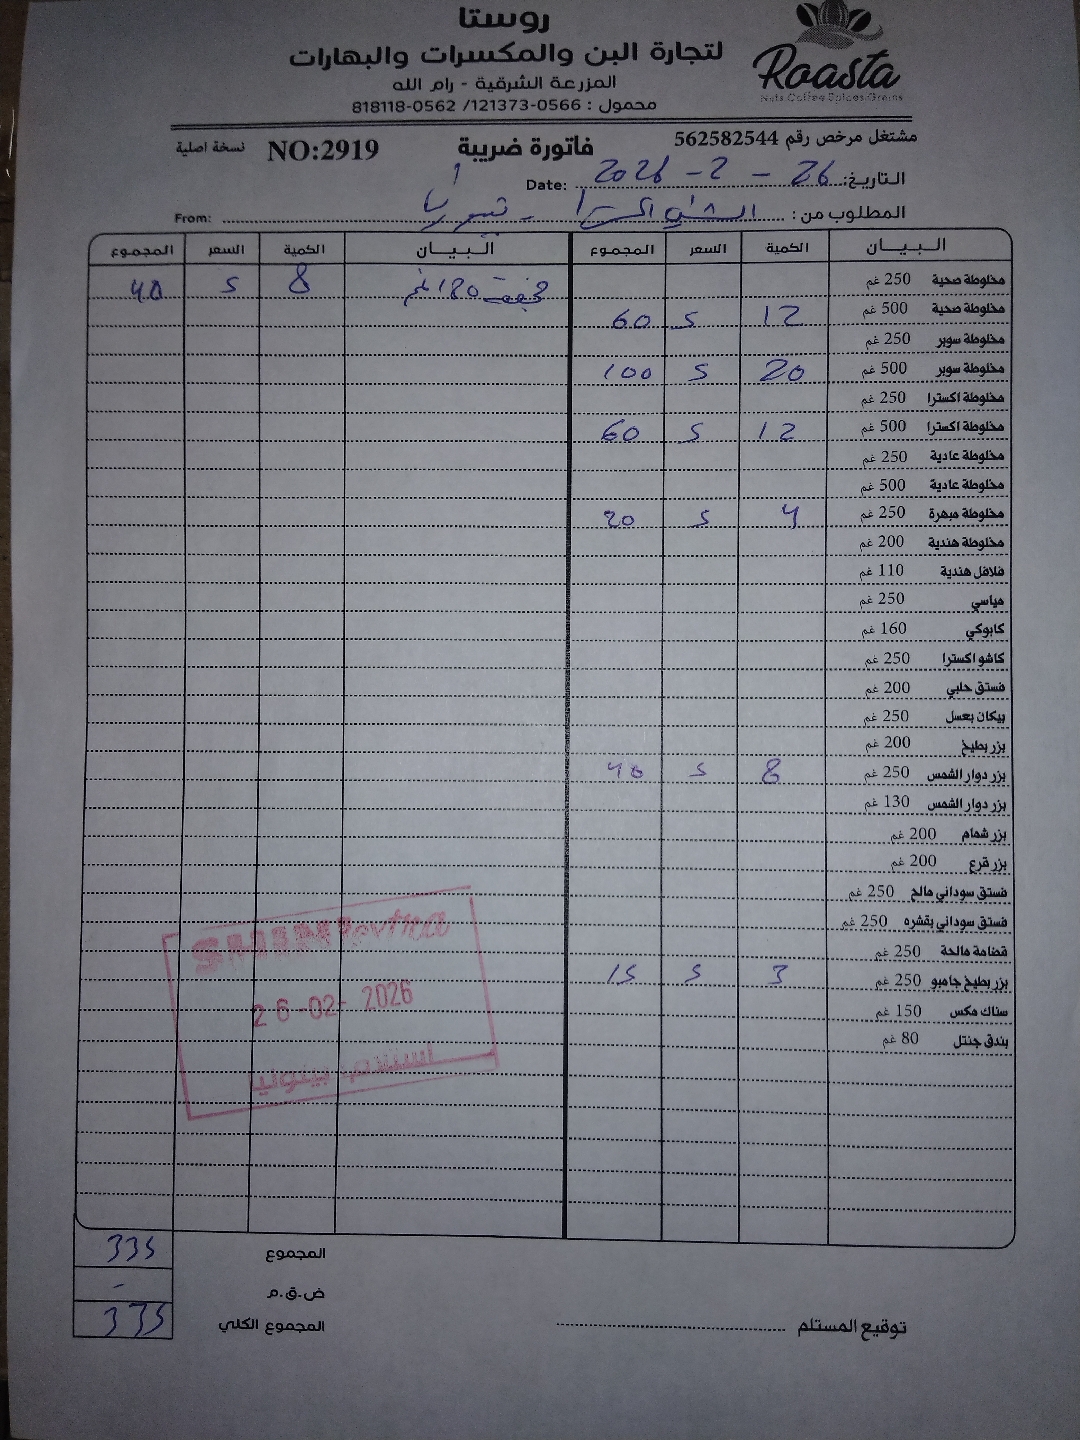 روستا
لتجارة البن والمكسرات والبهارات
المزرعة الشرقية - رام الله
محمول : 0566-121373/ 0562-818118
Roasta
Nuts.Coffee.Spices.Grains
مشتغل مرخص رقم 562582544
فاتورة ضريبة
NO:2919
نسخة اصلية
التاريخ: 26 - 2 - 2026 Date:
المطلوب من: From:
البيـــان الكمية السعر المجموع البيـــان الكمية السعر المجموع
مخلوطة صحية 250 غم 180 غم 8 5 40
مخلوطة صحية 500 غم 12 5 60
مخلوطة سوبر 250 غم
مخلوطة سوبر 500 غم 20 5 100
مخلوطة اكسترا 250 غم
مخلوطة اكسترا 500 غم 12 5 60
مخلوطة عادية 250 غم
مخلوطة عادية 500 غم
مخلوطة مبهرة 250 غم 4 5 20
مخلوطة هندية 200 غم
فلافل هندية 110 غم
مياسي 250 غم
كابوكي 160 غم
كاشو اكسترا 250 غم
فستق حلبي 200 غم
بيكان بعسل 250 غم
بزر بطيخ 200 غم
بزر دوار الشمس 250 غم 8 5 40
بزر دوار الشمس 130 غم
بزر شمام 200 غم
بزر قرع 200 غم
فستق سوداني مالح 250 غم
فستق سوداني بقشره 250 غم
قضامة مالحة 250 غم
بزر بطيخ جامبو 250 غم 3 5 15
سناك مكس 150 غم
بندق جنتل 80 غم
26-02-2026
المجموع 335
ض.ق.م -
المجموع الكلي 335
توقيع المستلم